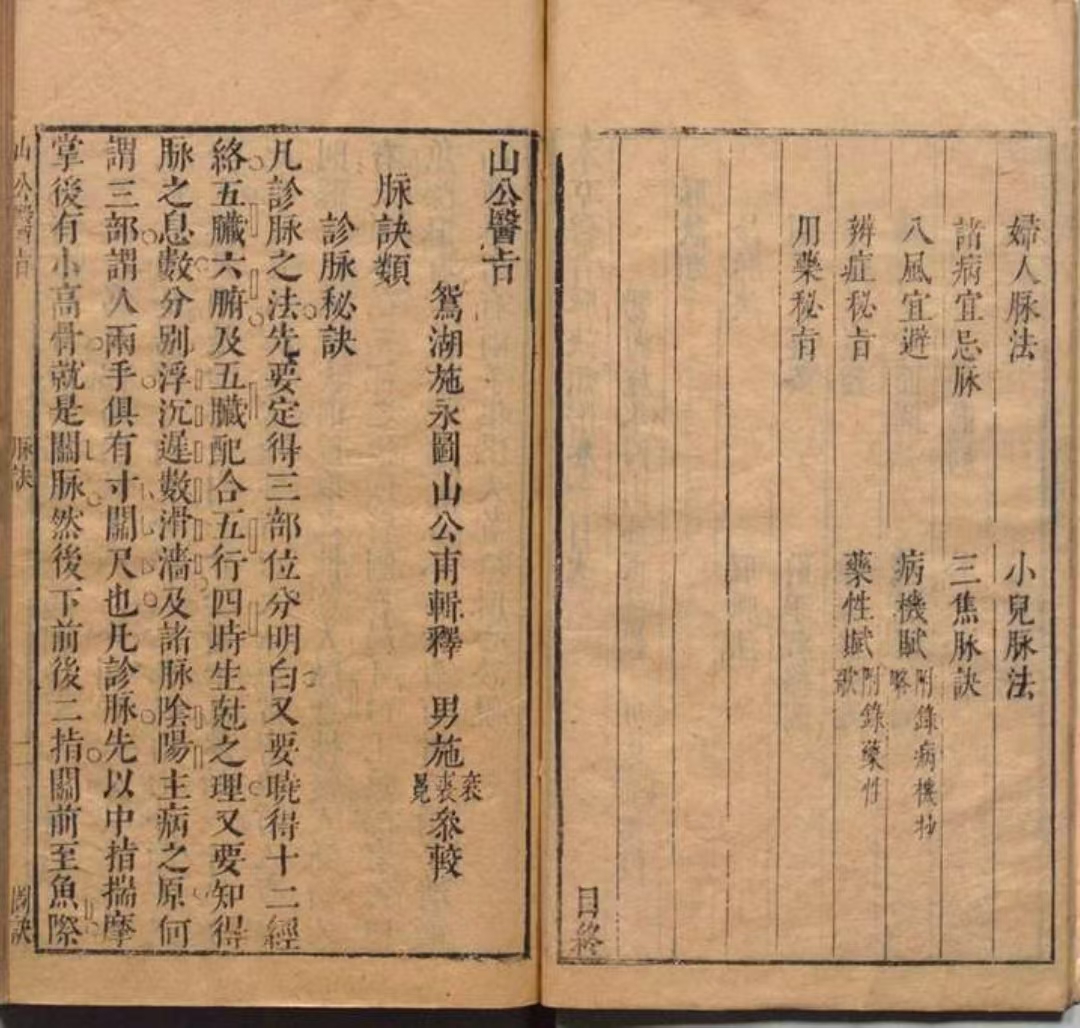 婦人脉法　小兒脉法
諸病宜忌脉　三焦脉訣
八風宜避　病機賦附錄病機抄略
辨症秘旨　藥性賦附錄藥性歌
用藥秘旨
目終
山公醫旨
鴛湖施永圖山公甫輯釋　男施衮裘冕叅較
脉訣類
診脉秘訣
凡診脉之法先要定得三部位分明白又要曉得十二經
絡五臟六腑及五臟配合五行四時生尅之理又要知得
脉之息數分別浮沉遲數滑濇及諸脉陰陽主病之原何
謂三部謂人兩手俱有寸關尺也凡診脉先以中指揣摩
掌後有小高骨就是關脉然後下前後二指關前至魚際
山公醫旨　脉訣　一　圖訣